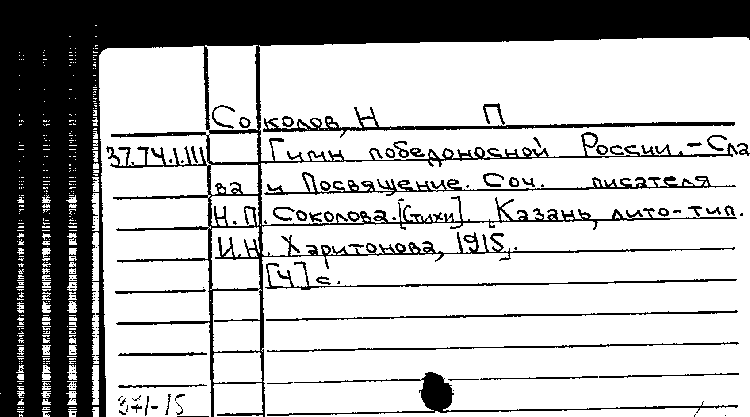 Соколов, Н П
37.74.1.III Гимн победоносной России. - Сла
ва и Посвящение. Соч. писателя
Н.П. Соколова. [Стихи]. Казань, лито-тип.
И.Н. Харитонова, 1915.
[4] с.
371-15